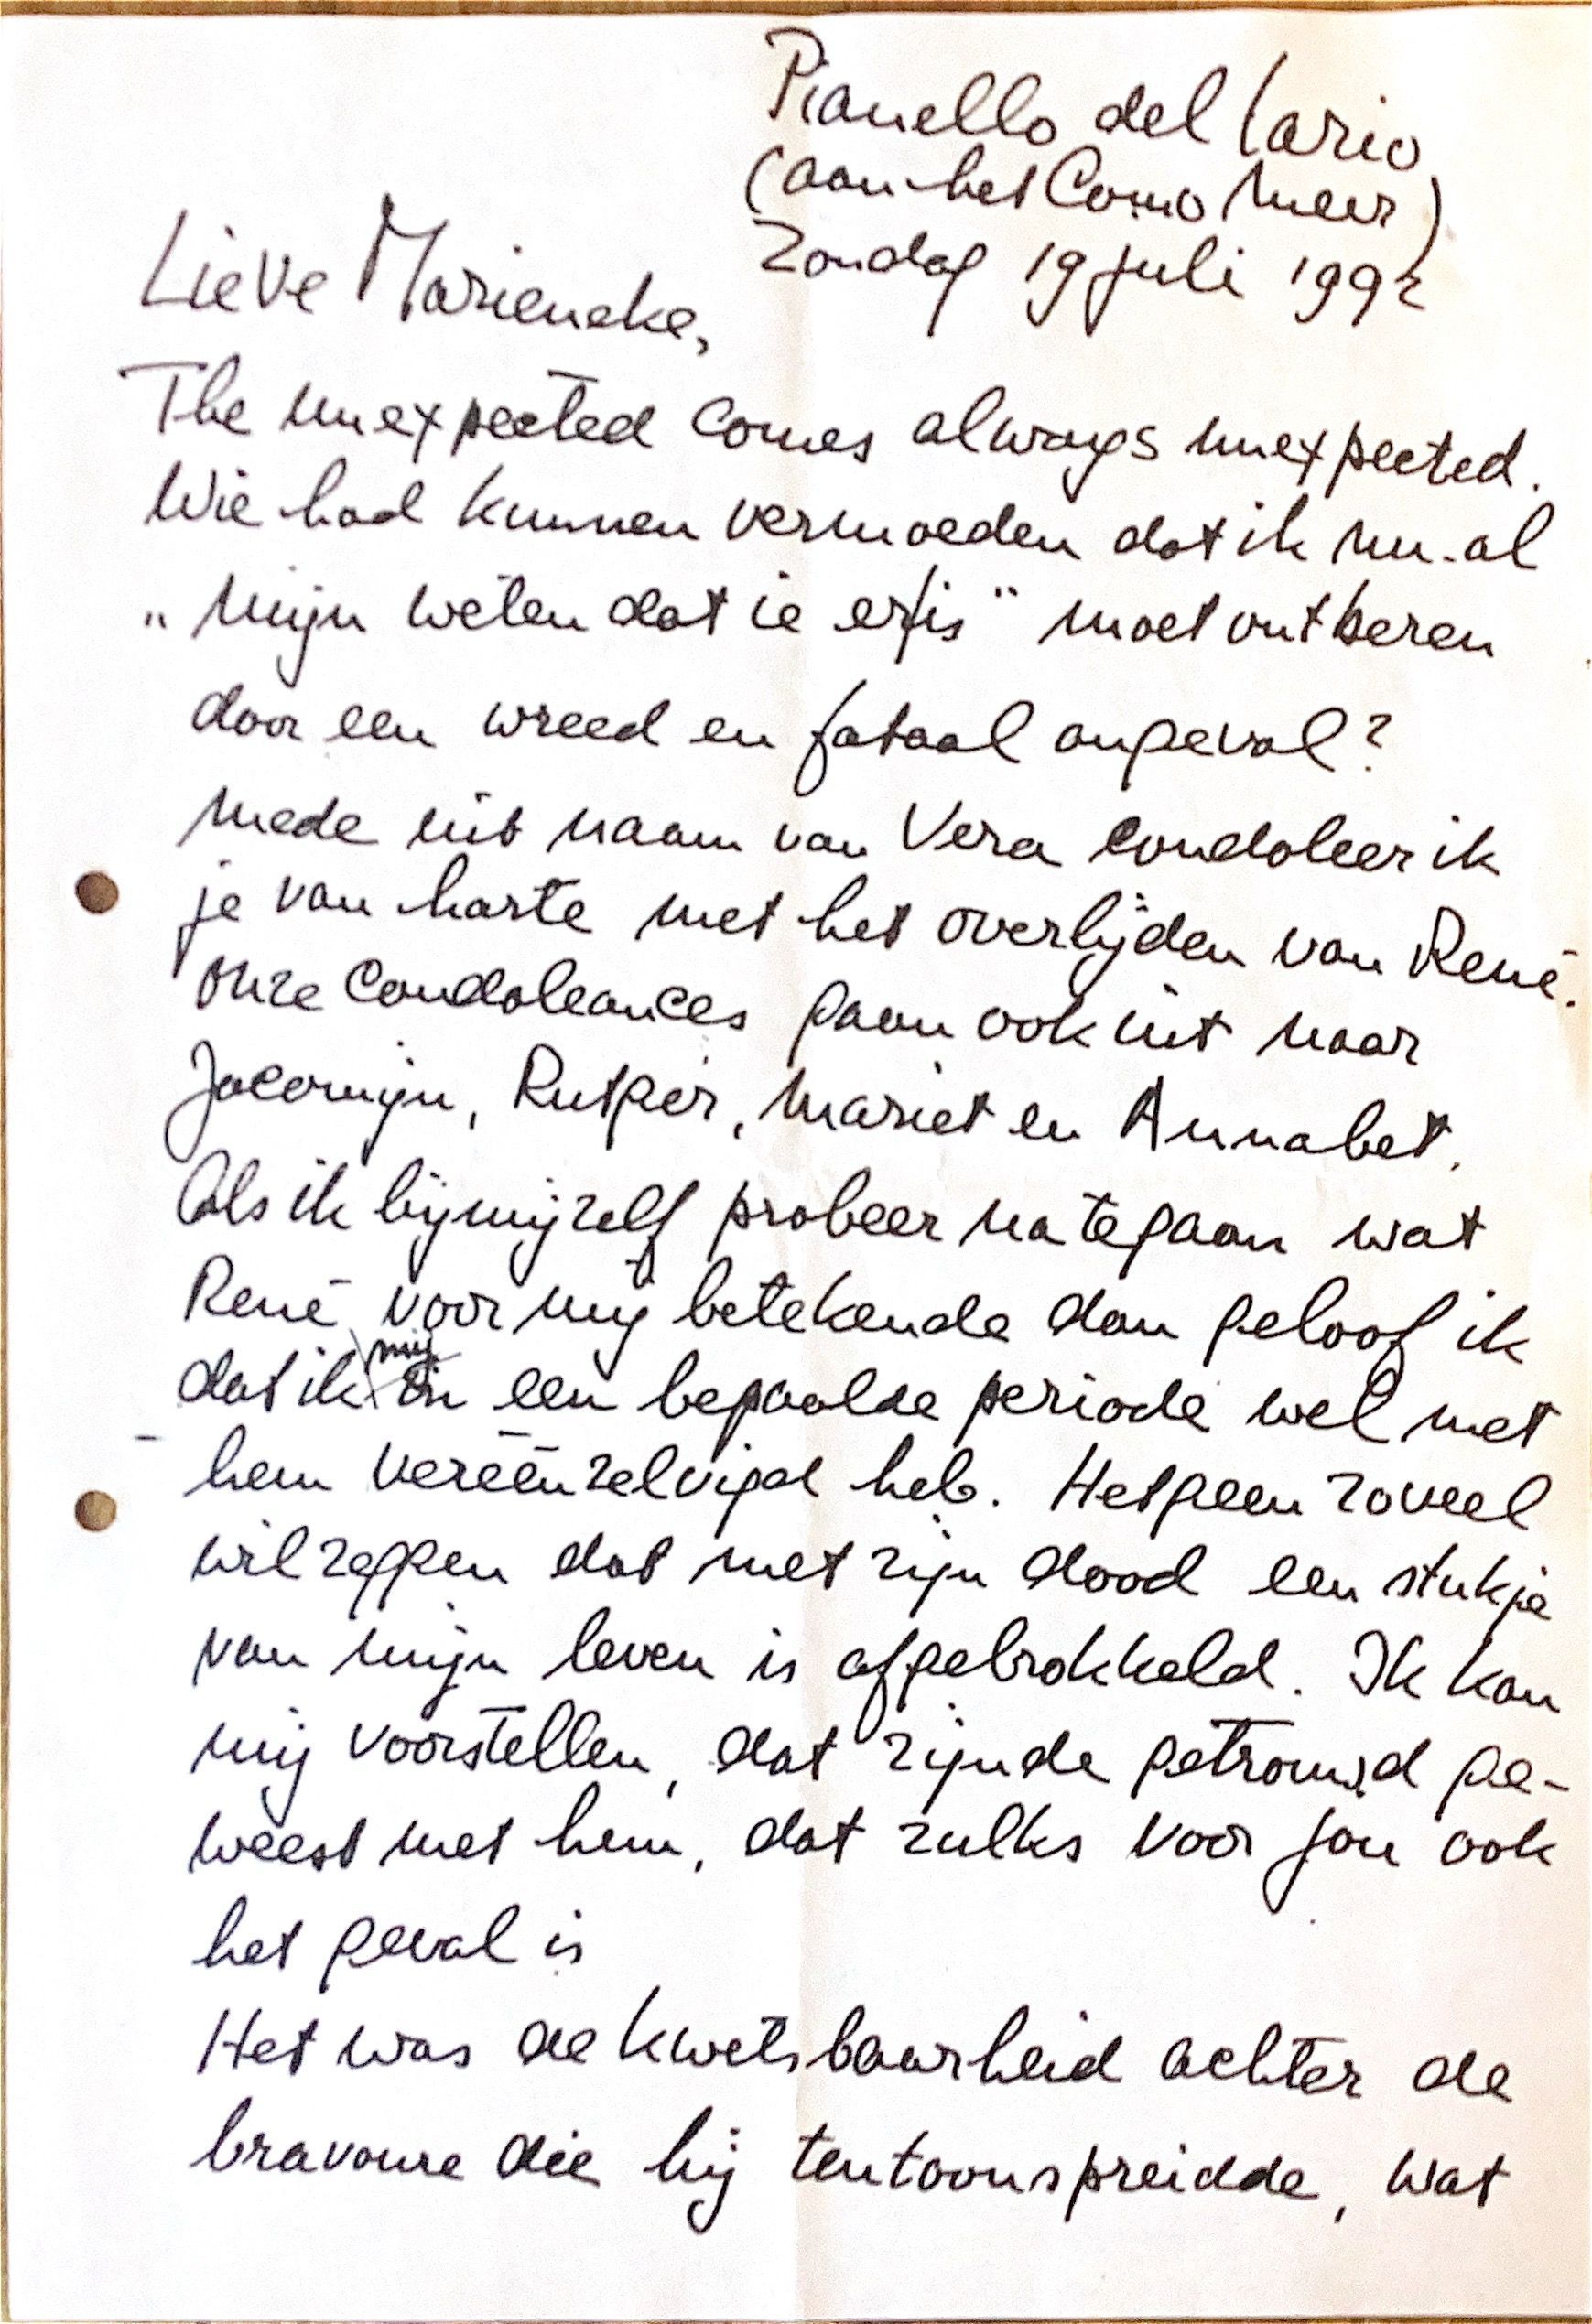 Pianello del Lario
(aan het Como Meer)
Zondag 19 juli 1992
Lieve Marieneke,
The unexpected comes always unexpected.
Wie had kunnen vermoeden dat ik nu al
„mijn weten dat ie er is" moet ontberen
door een wreed en fataal ongeval?
Mede uit naam van Vera condoleer ik
je van harte met het overlijden van René.
Onze condoleances gaan ook uit naar
Jacomijn, Rutger, Mariet en Annabet.
Als ik bij mijzelf probeer na te gaan wat
René voor mij betekende dan geloof ik
dat ik mij in een bepaalde periode wel met
hem veréénzelvigd heb. Hetgeen zoveel
wil zeggen dat met zijn dood een stukje
van mijn leven is afgebrokkeld. Ik kan
mij voorstellen, dat zijnde getrouwd ge-
weest met hem, dat zulks voor jou ook
het geval is
Het was de kwetsbaarheid achter de
bravoure die hij tentoonspreidde, wat